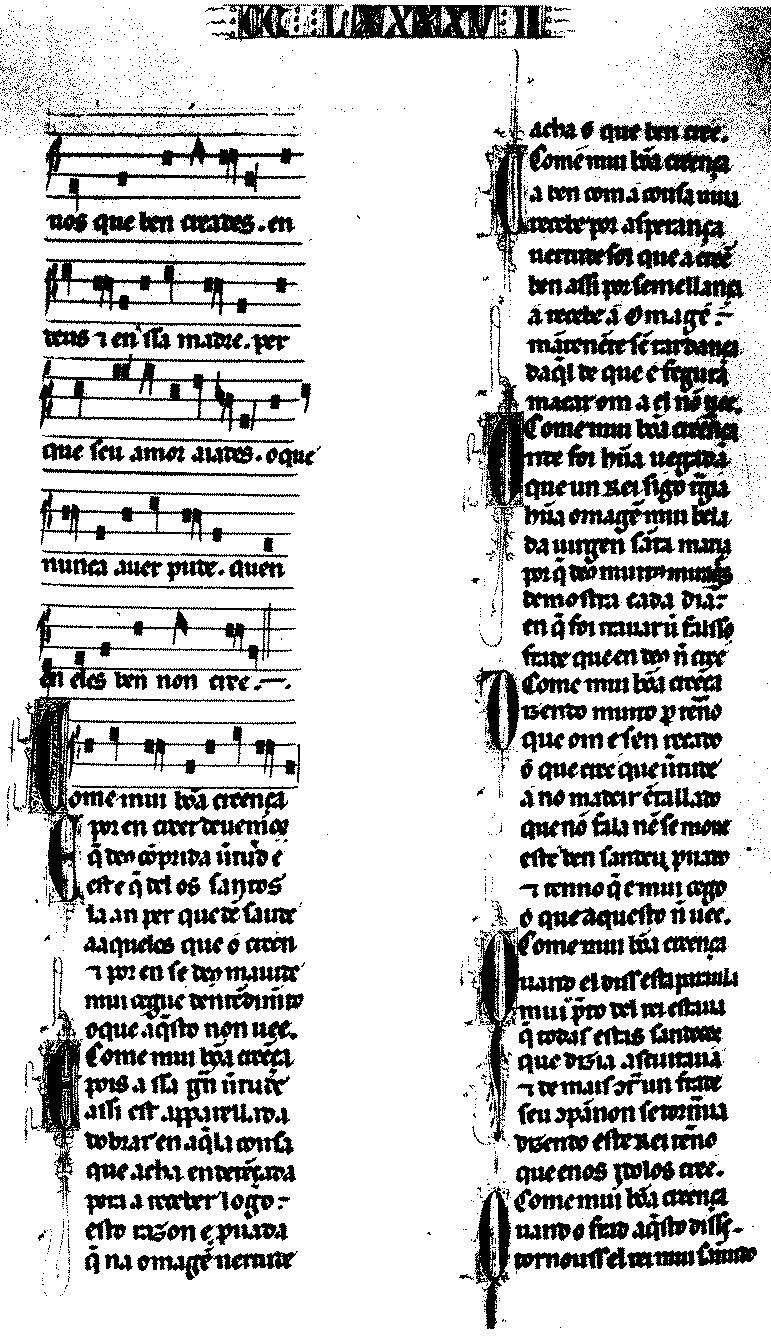 CCLXXXXVII
uos que ben creades . en
deus ⁊ en ssa madre . per
que seu amor aiades . o que
nunca auer pude . quen
en eles ben non cree .
Come mui bõa creença
por en creer deuemos
q̃ deo cõprida
este q̃ del os santos
la an per que dẽ saude
aaquelos que o creen
⁊ por en se deo maiude
mui cegue
o que aq̃sto non uee.
Come mui bõa creẽça
pois a ssa gr̃ uirtude
assi est apparellada
dobrar en aq̃la cousa
que acha enderẽçada
pera a receber logo
esto razon e prouada
q̃ na omagẽ uertude
acha o que ben cree.
Come mui bõa creença
a ben com a cousa uiuu
recebe por asperança
uertude
ben assi por semellança
a recebe a omagẽ
mãtenẽte sẽ tardança
daq̃l de que e fegura
macar om a el nõ uee.
Come mui bõa creẽça
nde foi hũa uegada
que un Rei sigo tragia
hũa omagẽ mui bela
da uirgen sãta maria
por q̃ deo muitos
demostra cada dia
en q̃ foi trauar ũ falsso
frade que en deo ñ cree
Come mui bõa creẽça
Dizendo muito p̃
que om e sen recado
o que cree que uirtude
a no madeir ẽtallado
que nõ fala nẽ se moue
este ben sandeu prouado
⁊ tenno q̃ e mui cego
o que aquesto ñ uee.
Come mui bõa creença
Quand el diss esta paraula
mui p̃to del rei estaua
q̃ todas estas sandeces
que dizia ascuitaua
⁊ de mais outr un frade
seu conpannon se tornaua
dizendo este Rei tẽno
que enos ydolos cree.
Come mui bõa creença
Quando o frad aq̃sto disse
tornouss el rei mui sannudo